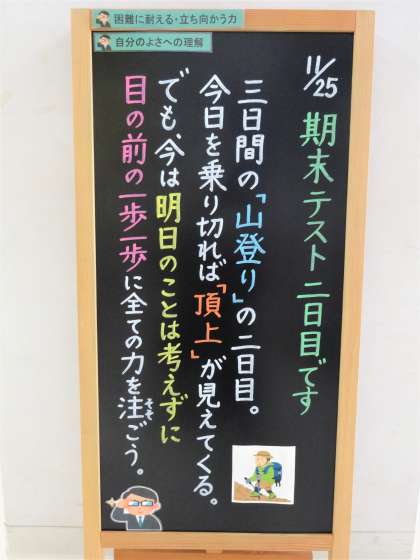 困難に耐える・立ち向かう力
自分のよさへの理解
11/25
期末テスト二日目です
三日間の「山登り」の二日目。
今日を乗り切れば「頂上」が見えてくる。
でも、今は明日のことは考えずに
目の前の一歩一歩に全ての力を注ごう。
そそ